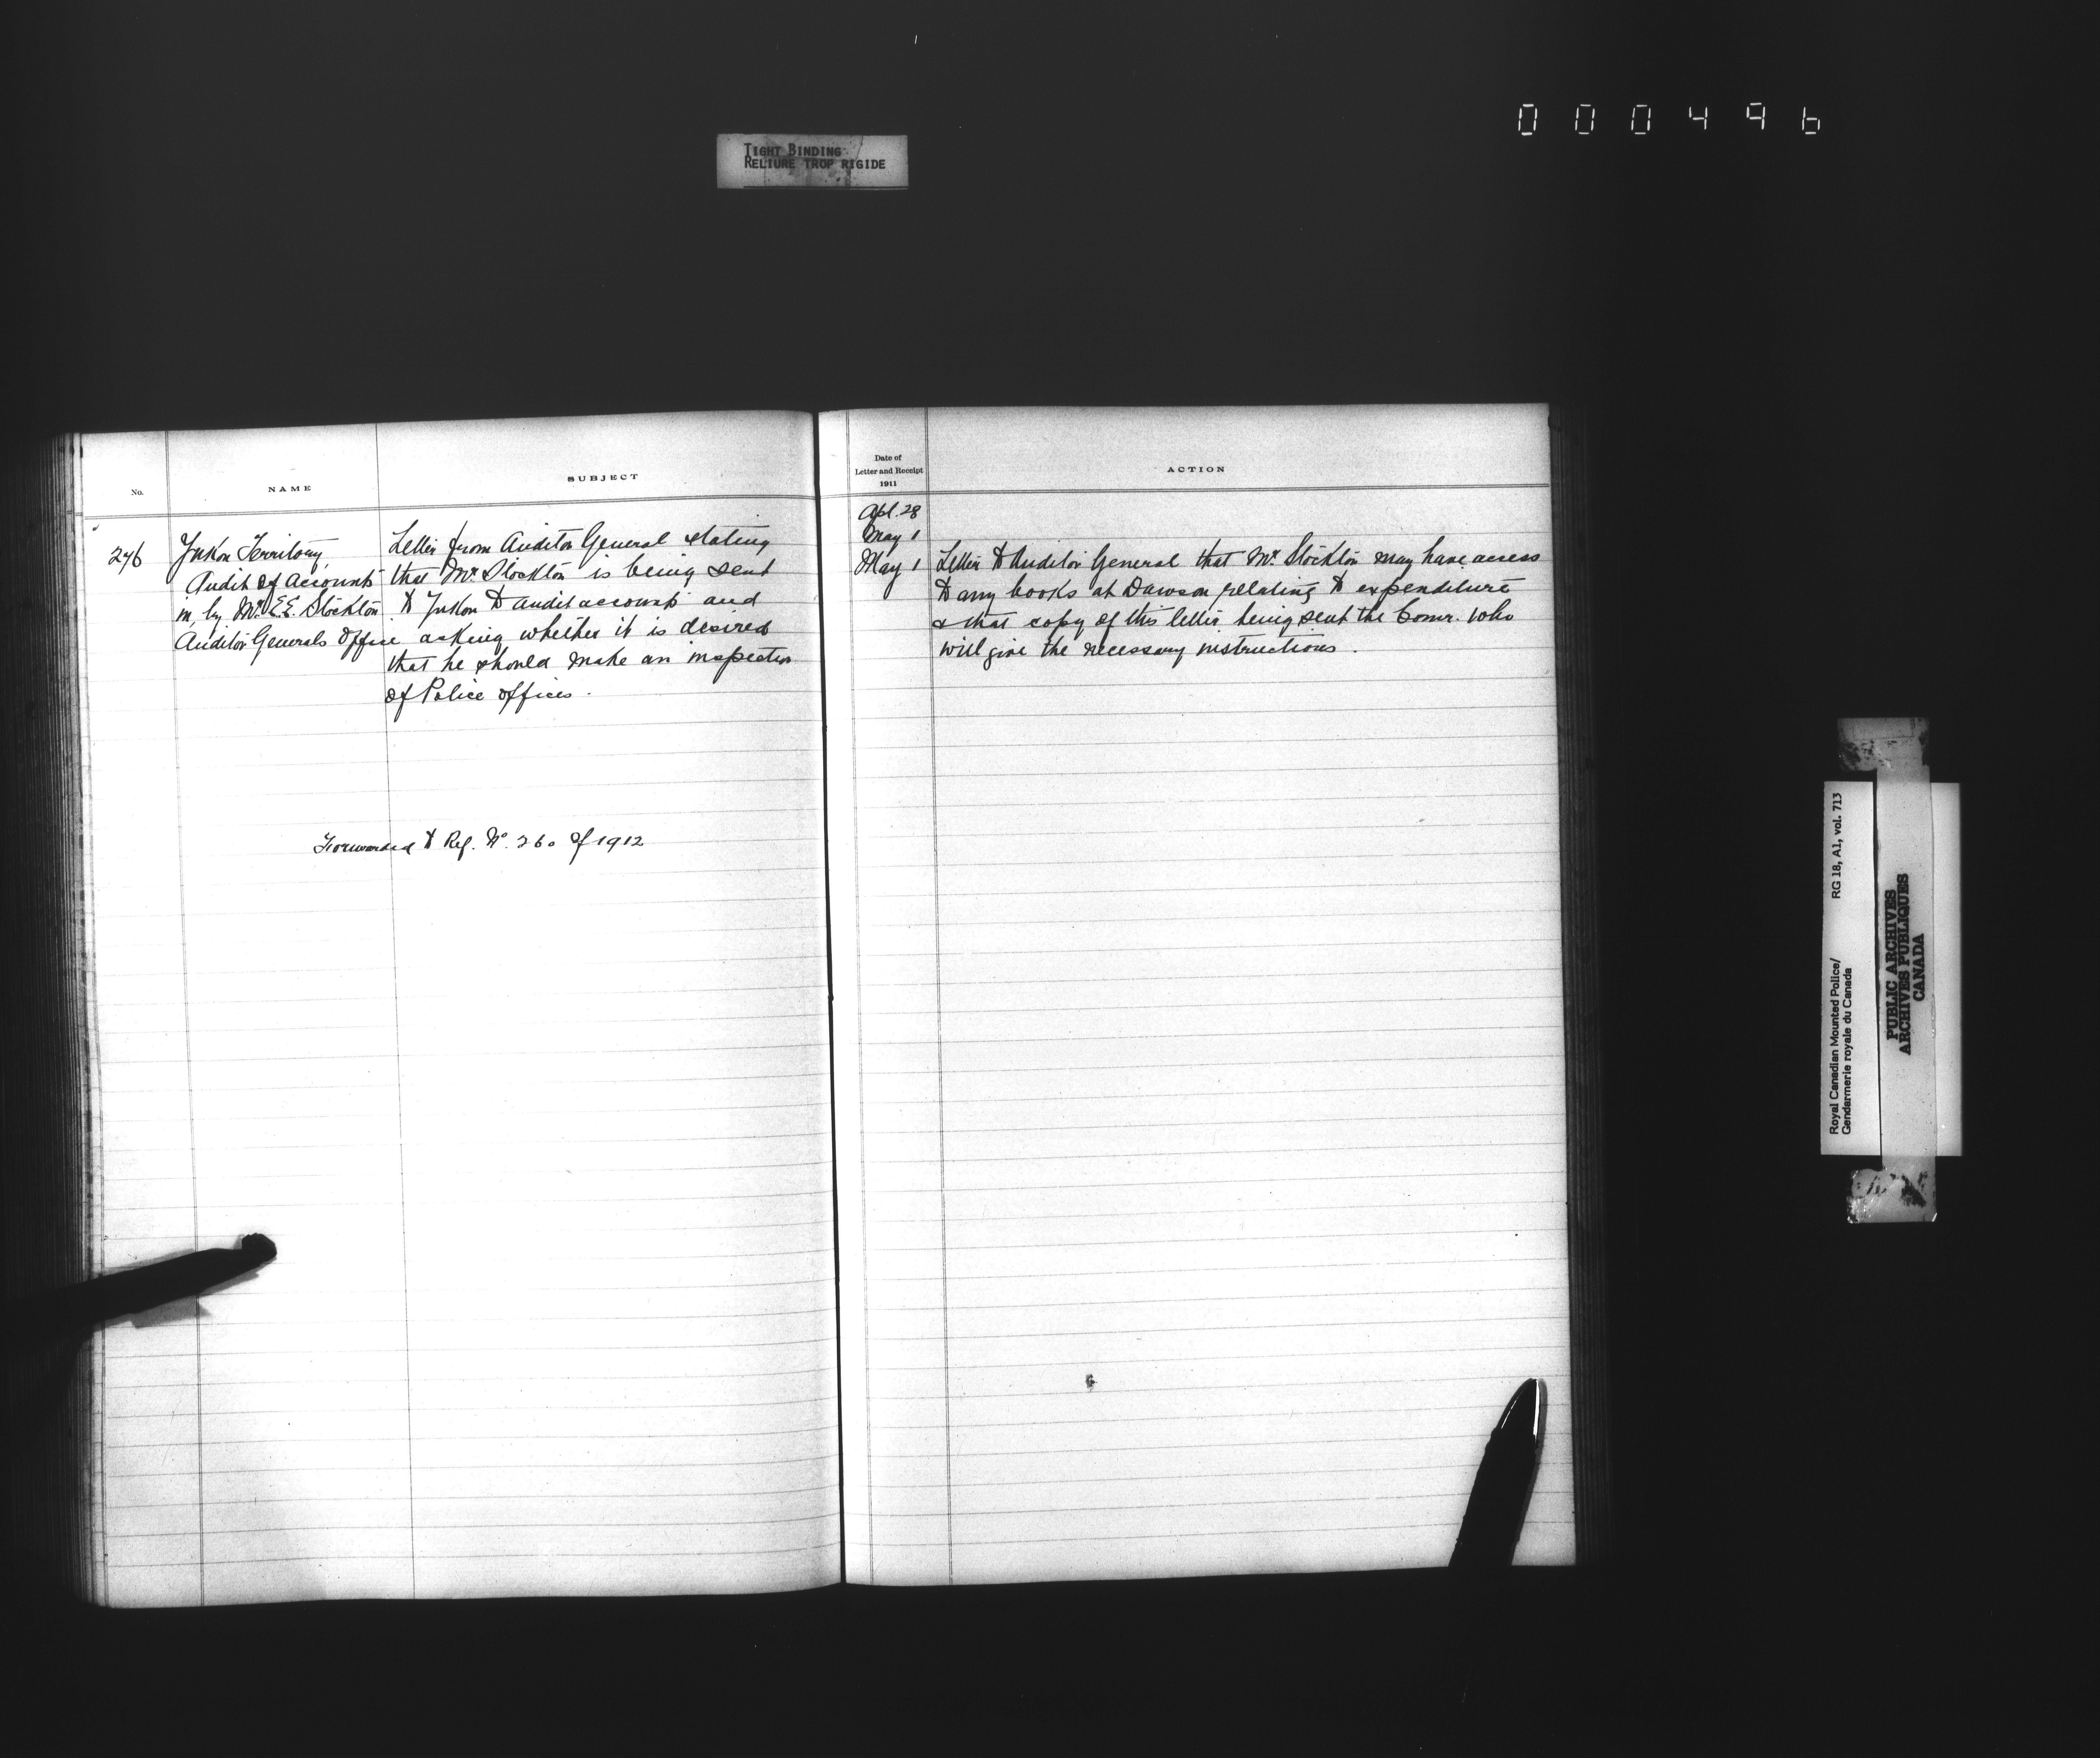 000496
TIGHT BINDING
RELIURE TROP RIGIDE
No.
NAME
SUBJECT
276
Yukon Territory
Audit of Accounts
in by Mr. E.E. Stockton
Auditor Generals Office
Letter from Auditor General stating
that Mr. Stockton is being sent
to Yukon to audit accounts and
asking whether it is desired
that he should make an inspection
of Police offices.
Forwarded to Reg. No. 260 of 1912
Date of
Letter and Receipt
1911
ACTION
Apl. 28
May 1
May 1
Letter to Auditor General that Mr. Stockton may have access
to any books at Dawson relating to expenditure
& that copy of this letter being sent the Comr. who
will give the necessary instructions.
Royal Canadian Mounted Police/
Gendarmerie royale du Canada
RG 18, A1, vol. 713
PUBLIC ARCHIVES
ARCHIVES PUBLIQUES
CANADA